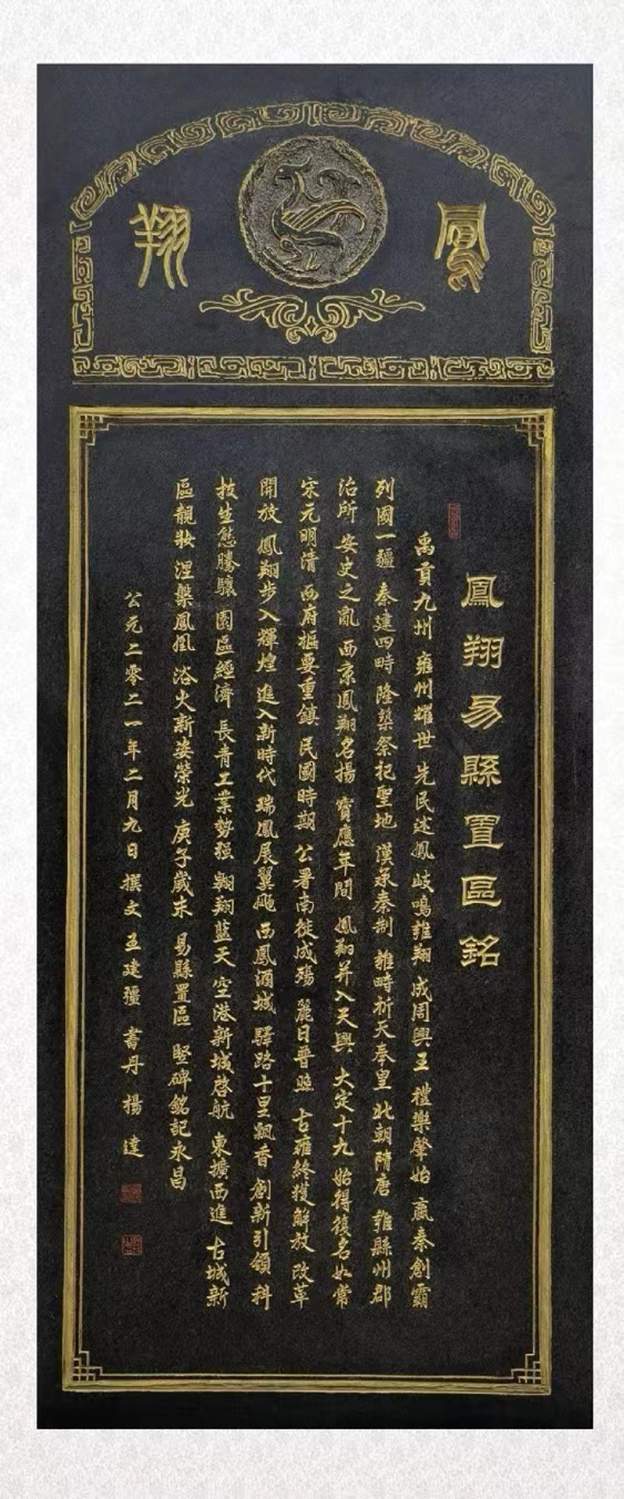 鳳翔
鳳翔易縣置區銘
禹貢九州 雍州耀世 先民逑鳳 岐鳴雍翔 成周興王 禮樂肇始 嬴秦創霸
列國一疆 秦建四畤 隆築祭祀聖地 漢承秦制 雍畤祈天奉皇 北朝隋唐 雍縣州郡
治所 安史之亂 西京鳳翔名揚 寶應年間 鳳翔并入天興 大定十九 始得復名如常
宋元明清 西府樞要重鎮 民國時期 公署南徙成殤 麗日普照 古雍終獲解放 改革
開放 鳳翔步入輝煌 進入新時代 瑞鳳展翼颺 西鳳酒城 驛路十里飄香 創新引領 科
技生態騰驤 園區經濟 長青工業勢强 翱翔藍天 空港新城啓航 東擴西進 古城新
區靚妝 涅槃鳳凰 浴火新姿榮光 庚子歲末 易縣置區 竪碑銘記永昌
公元二零二一年二月九日 撰文 王建疆 書丹 楊達